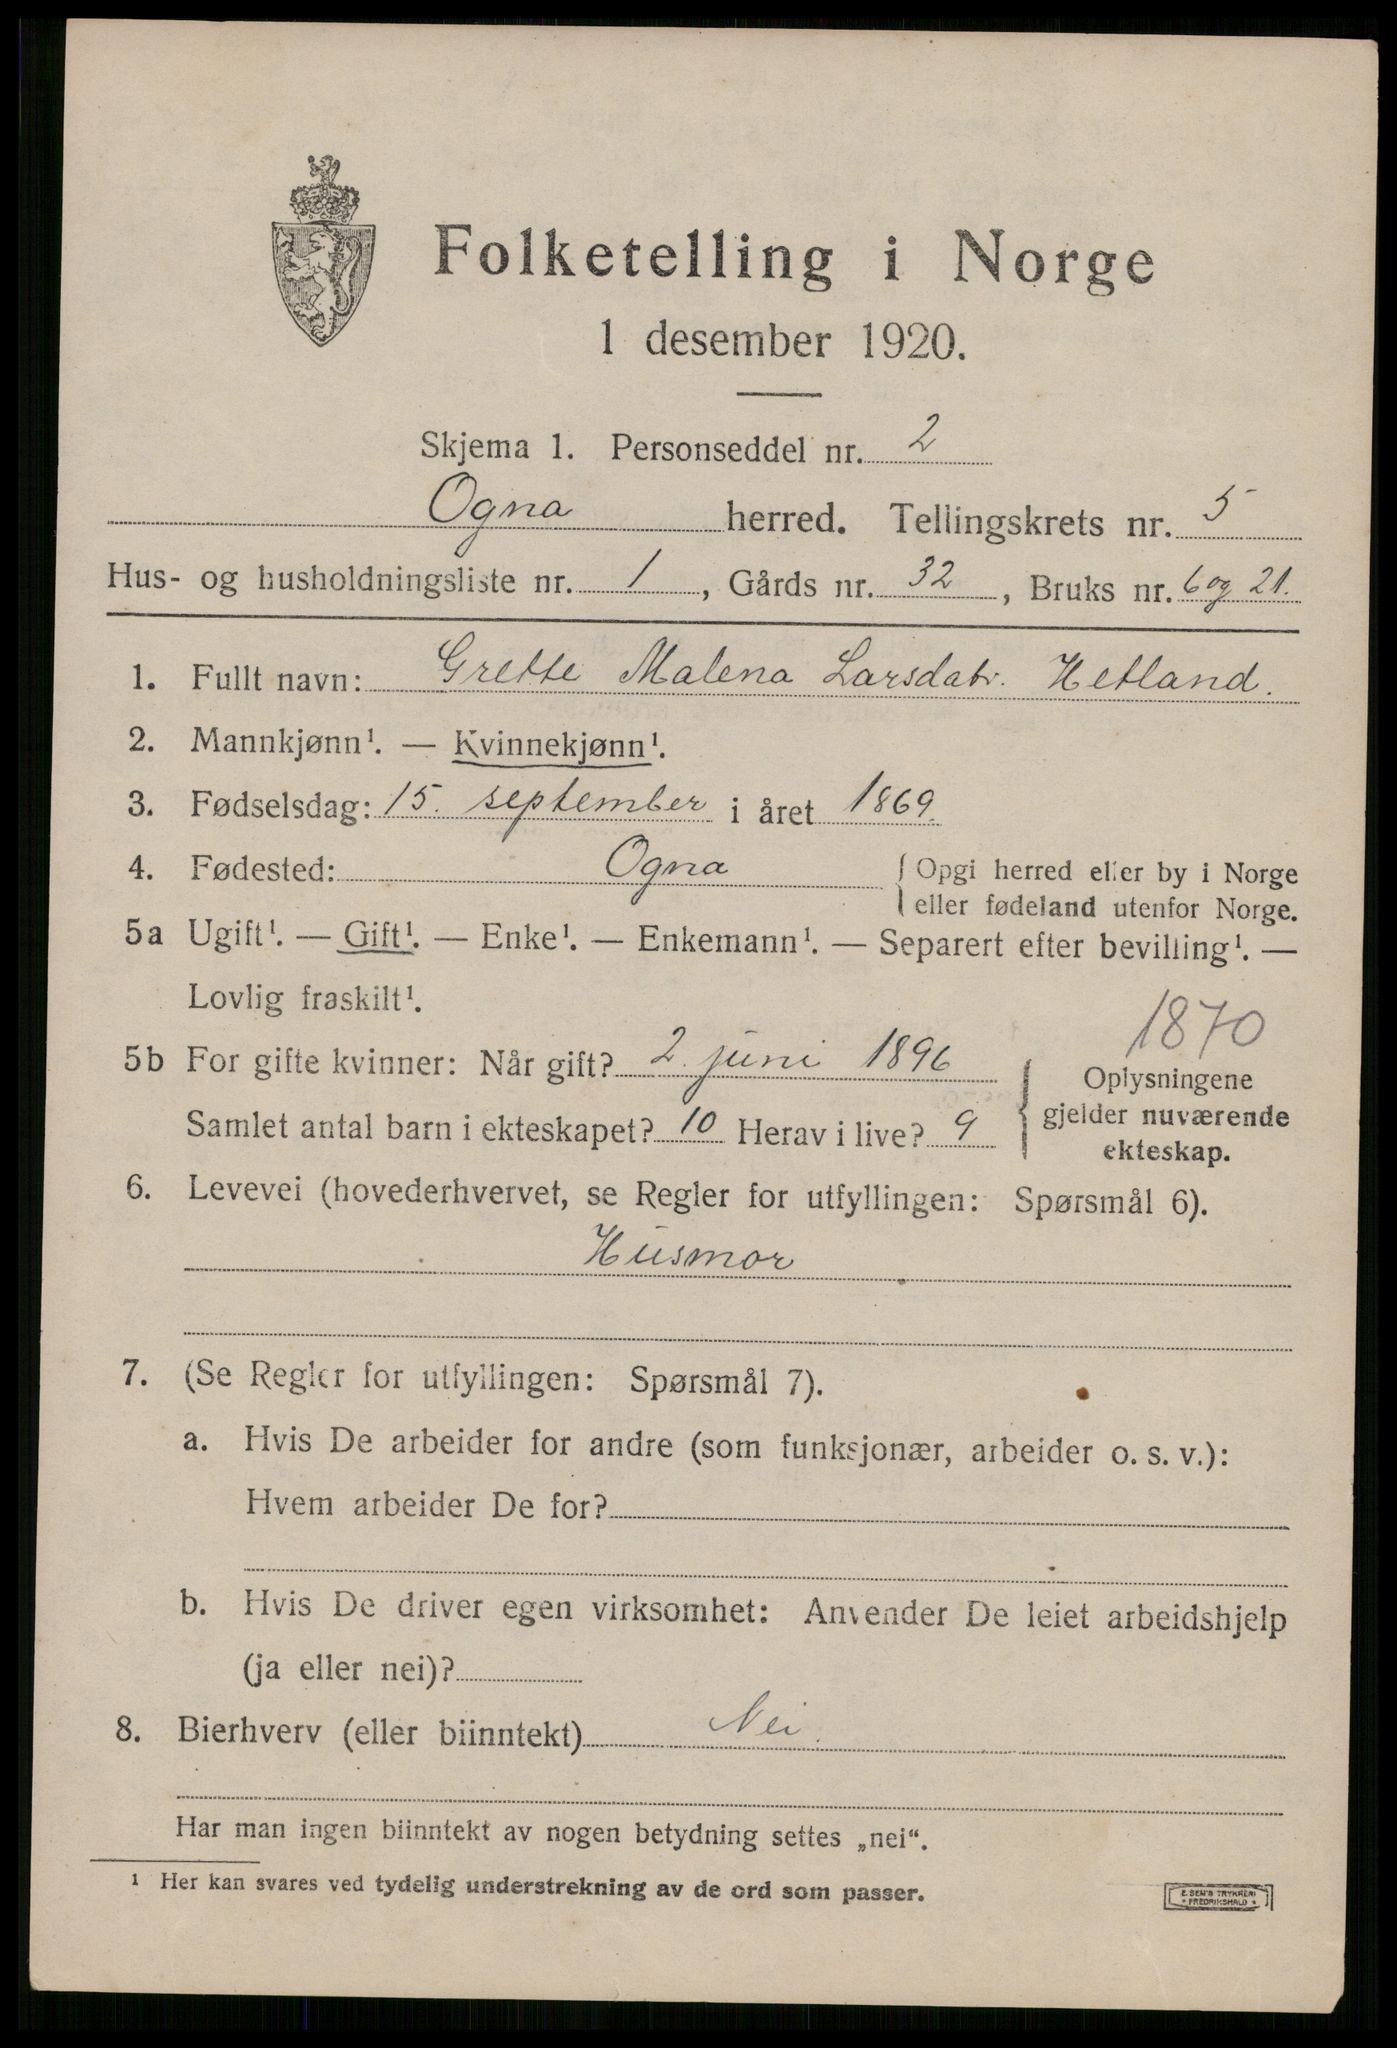 Folketelling i Norge
1 desember 1920.
Skjema 1. Personseddel nr. 2
Ogna herred. Tellingskrets nr. 5
Hus- og husholdningsliste nr. 1, Gårds nr. 32, Bruks nr. 6 og 21.
1. Fullt navn: Grette Malena Larsdatr. Hetland.
2. Mannkjønn¹. — Kvinnekjønn¹.
3. Fødselsdag: 15. september i året 1869.
4. Fødested: Ogna { Opgi herred eller by i Norge
eller fødeland utenfor Norge.
5a Ugift¹. — Gift¹. — Enke¹. — Enkemann¹. — Separert efter bevilling¹. —
Lovlig fraskilt¹.
1870
5b For gifte kvinner: Når gift? 2. juni 1896
Samlet antal barn i ekteskapet? 10 Herav i live? 9
{ Oplysningene
gjelder nuværende
ekteskap.
6. Levevei (hovederhvervet, se Regler for utfyllingen: Spørsmål 6).
Husmor
7. (Se Regler for utfyllingen: Spørsmål 7).
a. Hvis De arbeider for andre (som funksjonær, arbeider o. s. v.):
Hvem arbeider De for?
b. Hvis De driver egen virksomhet: Anvender De leiet arbeidshjelp
(ja eller nei)?
8. Bierhverv (eller biinntekt) Nei.
Har man ingen biinntekt av nogen betydning settes „nei“.
¹ Her kan svares ved tydelig understrekning av de ord som passer.
E. SEM'S TRYKKERI
* FREDRIKSHALD *